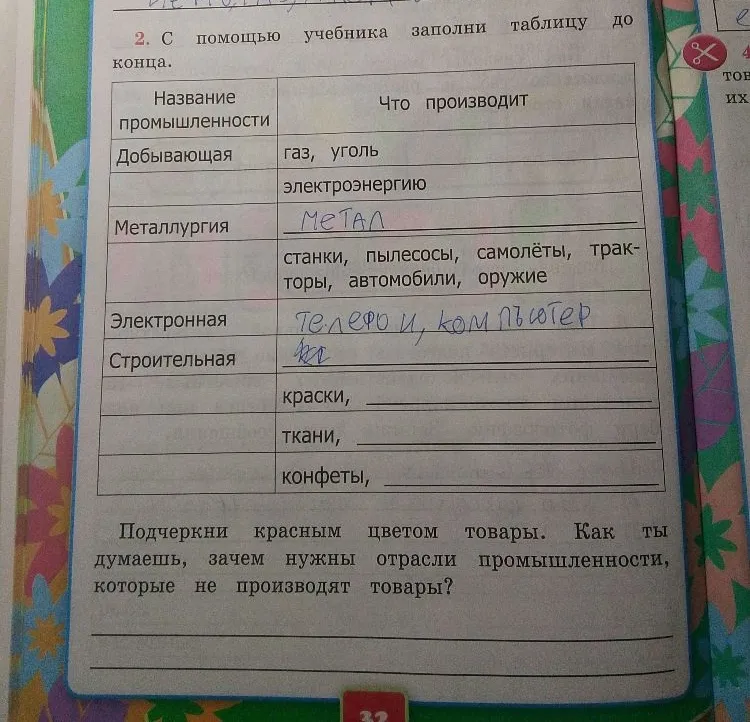 2. С помощью учебника заполни таблицу до
конца.
Название
промышленности
Что производит
Добывающая
газ, уголь
электроэнергию
Металлургия
метал
станки, пылесосы, самолёты, трак-
торы, автомобили, оружие
Электронная
телефон, компьютер
Строительная
краски,
ткани,
конфеты,
Подчеркни красным цветом товары. Как ты
думаешь, зачем нужны отрасли промышленности,
которые не производят товары?
32
4
тов
их